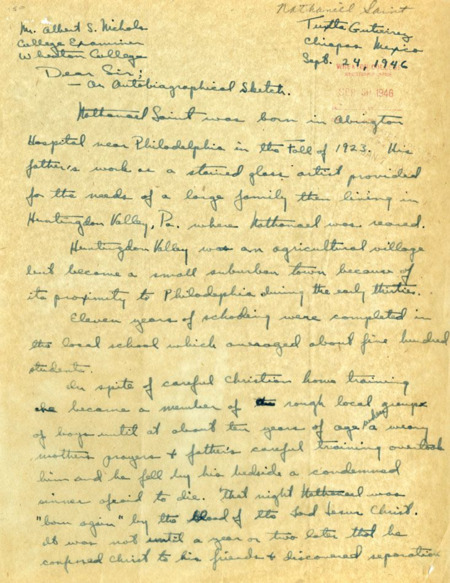 Nathaniel Saint
Mr. Albert S. Nichols
College Examiner
Wheaton College
Tuxtla Gutierrez
Chiapas Mexico
Sept. 24, 1946
Dear Sir;
— An Autobiographical Sketch.
Nathanael Saint was born in Abington
Hospital near Philadelphia in the Fall of 1923. His
father's work as a stained glass artist provided
for the needs of a large family then living in
Huntingdon Valley, Pa. where Nathanael was reared.
Huntingdon Valley was an agricultural village
but became a small suburban town because of
its proximity to Philadelphia during the early thirties.
Eleven years of schooling were completed in
the local school which averaged about five hundred
students.
In spite of careful Christian home training
he became a member of rough local groups
of boys until at about ten years of age when a
mother's prayers & father's careful training overtook
him and he fell by his bedside a condemned
sinner afraid to die. That night Nathanael was
"born again" by the blood of the Lord Jesus Christ.
It was not until a year or two later that he
confessed Christ to his friends & discovered separation